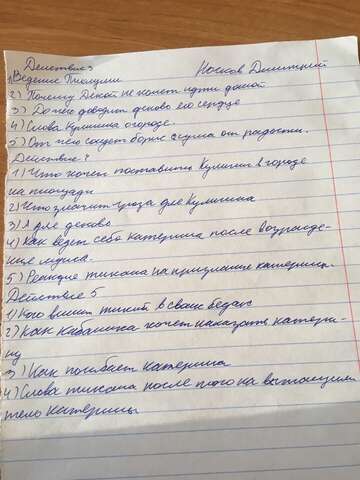 Действие 3
Носков Дмитрий
1) Ведение Тиолумии
2) Почему Дикой не хочет идти домой
3) До чего доводит дикого его сердце
4) Слова Кулигина о городе.
5) От чего сойдет Борис с ума от радости.
Действие ?
1) Что хочет поставить Кулигин в городе
на площади
2) Что значит гроза для Кулигина
3) А для дикого
4) Как ведет себя катерина после возраще-
ния мужа.
5) Реакция тихона на признание катерины.
Действие 5
1) Кого винит тихон в своих бедах
2) Как кабаниха хочет наказать катери-
ну
3) Как погибает катерина
4) Слова тихона после того как вытащили
тело катерины